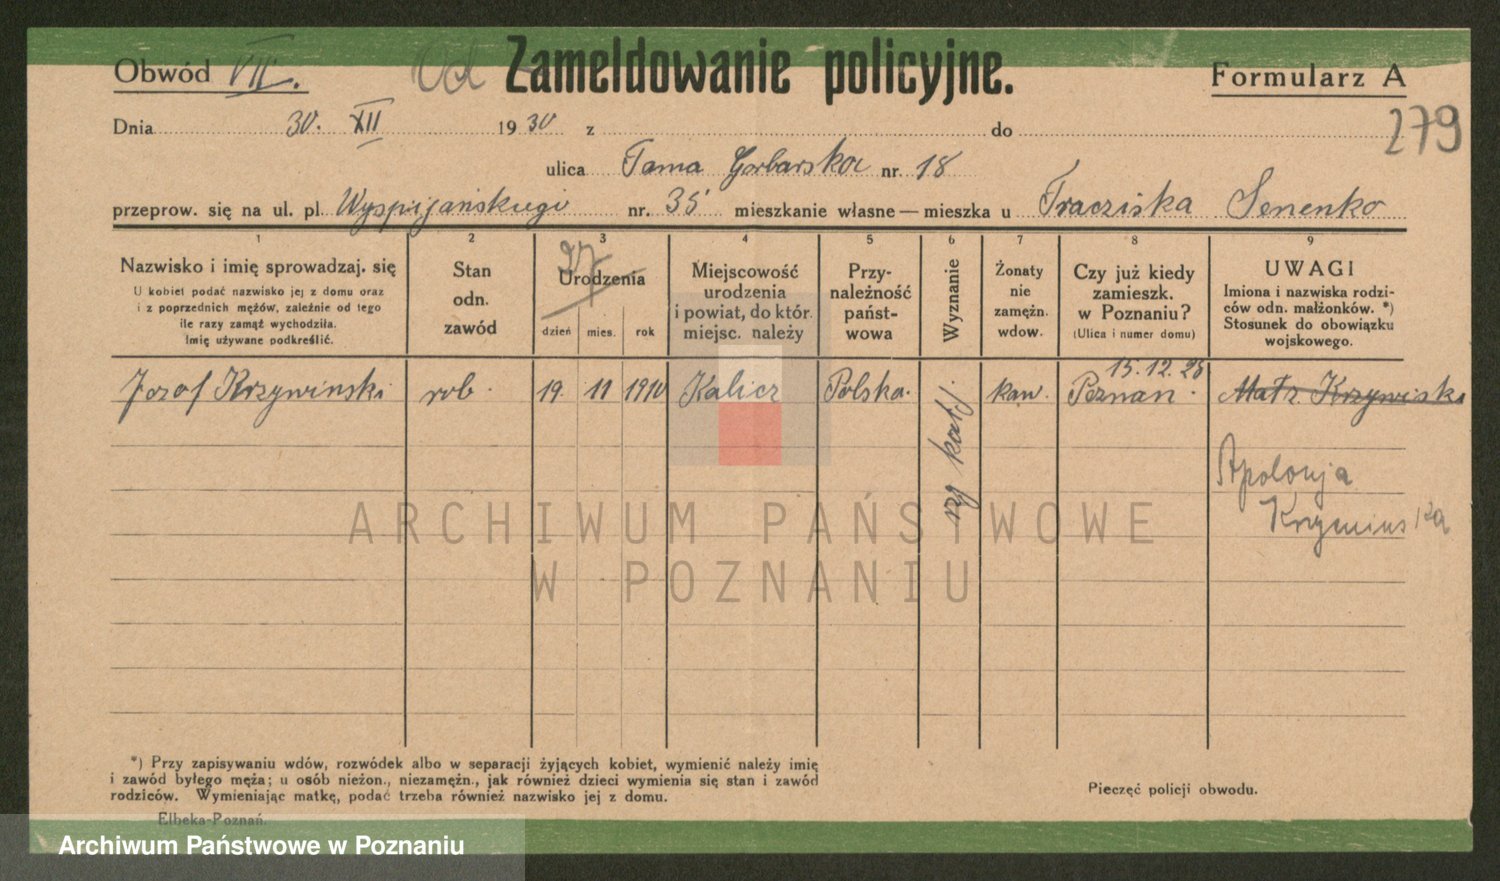 Obwód VII.
Od Zameldowanie policyjne.
Formularz A
279
Dnia 30. XII 1930 z do
ulica Tama Gorbarska nr. 18
przeprow. się na ul. pl. Wyspijańskiego nr. 35 mieszkanie własne — mieszka u Fracziska Senenko
1 2 3 4 5 6 7 8 9
Nazwisko i imię sprowadzaj. się
U kobiet podać nazwisko jej z domu oraz
i z poprzednich mężów, zależnie od tego
ile razy zamąż wychodziła.
Imię używane podkreślić.
Stan
odn.
zawód
27
Urodzenia
dzień mies. rok
Miejscowość
urodzenia
i powiat, do któr.
miejsc. należy
Przy-
należność
państ-
wowa
Wyznanie
Żonaty
nie
zamężn.
wdow.
Czy już kiedy
zamieszk.
w Poznaniu?
(Ulica i numer domu)
UWAGI
Imiona i nazwiska rodzi-
ców odn. małżonków. *)
Stosunek do obowiązku
wojskowego.
15.12.28
Jozef Krzywinski rob. 19. 11 1910 Kalicz Polska. rzy katj. kaw. Poznan. Matr. Krzywiska
Apolonja
Krzywinska
ARCHIWUM PAŃSTWOWE
W POZNANIU
*) Przy zapisywaniu wdów, rozwódek albo w separacji żyjących kobiet, wymienić należy imię
i zawód byłego męża; u osób nieżon., niezamężn., jak również dzieci wymienia się stan i zawód
rodziców. Wymieniając matkę, podać trzeba również nazwisko jej z domu.
Pieczęć policji obwodu.
Elbeka-Poznań.
Archiwum Państwowe w Poznaniu